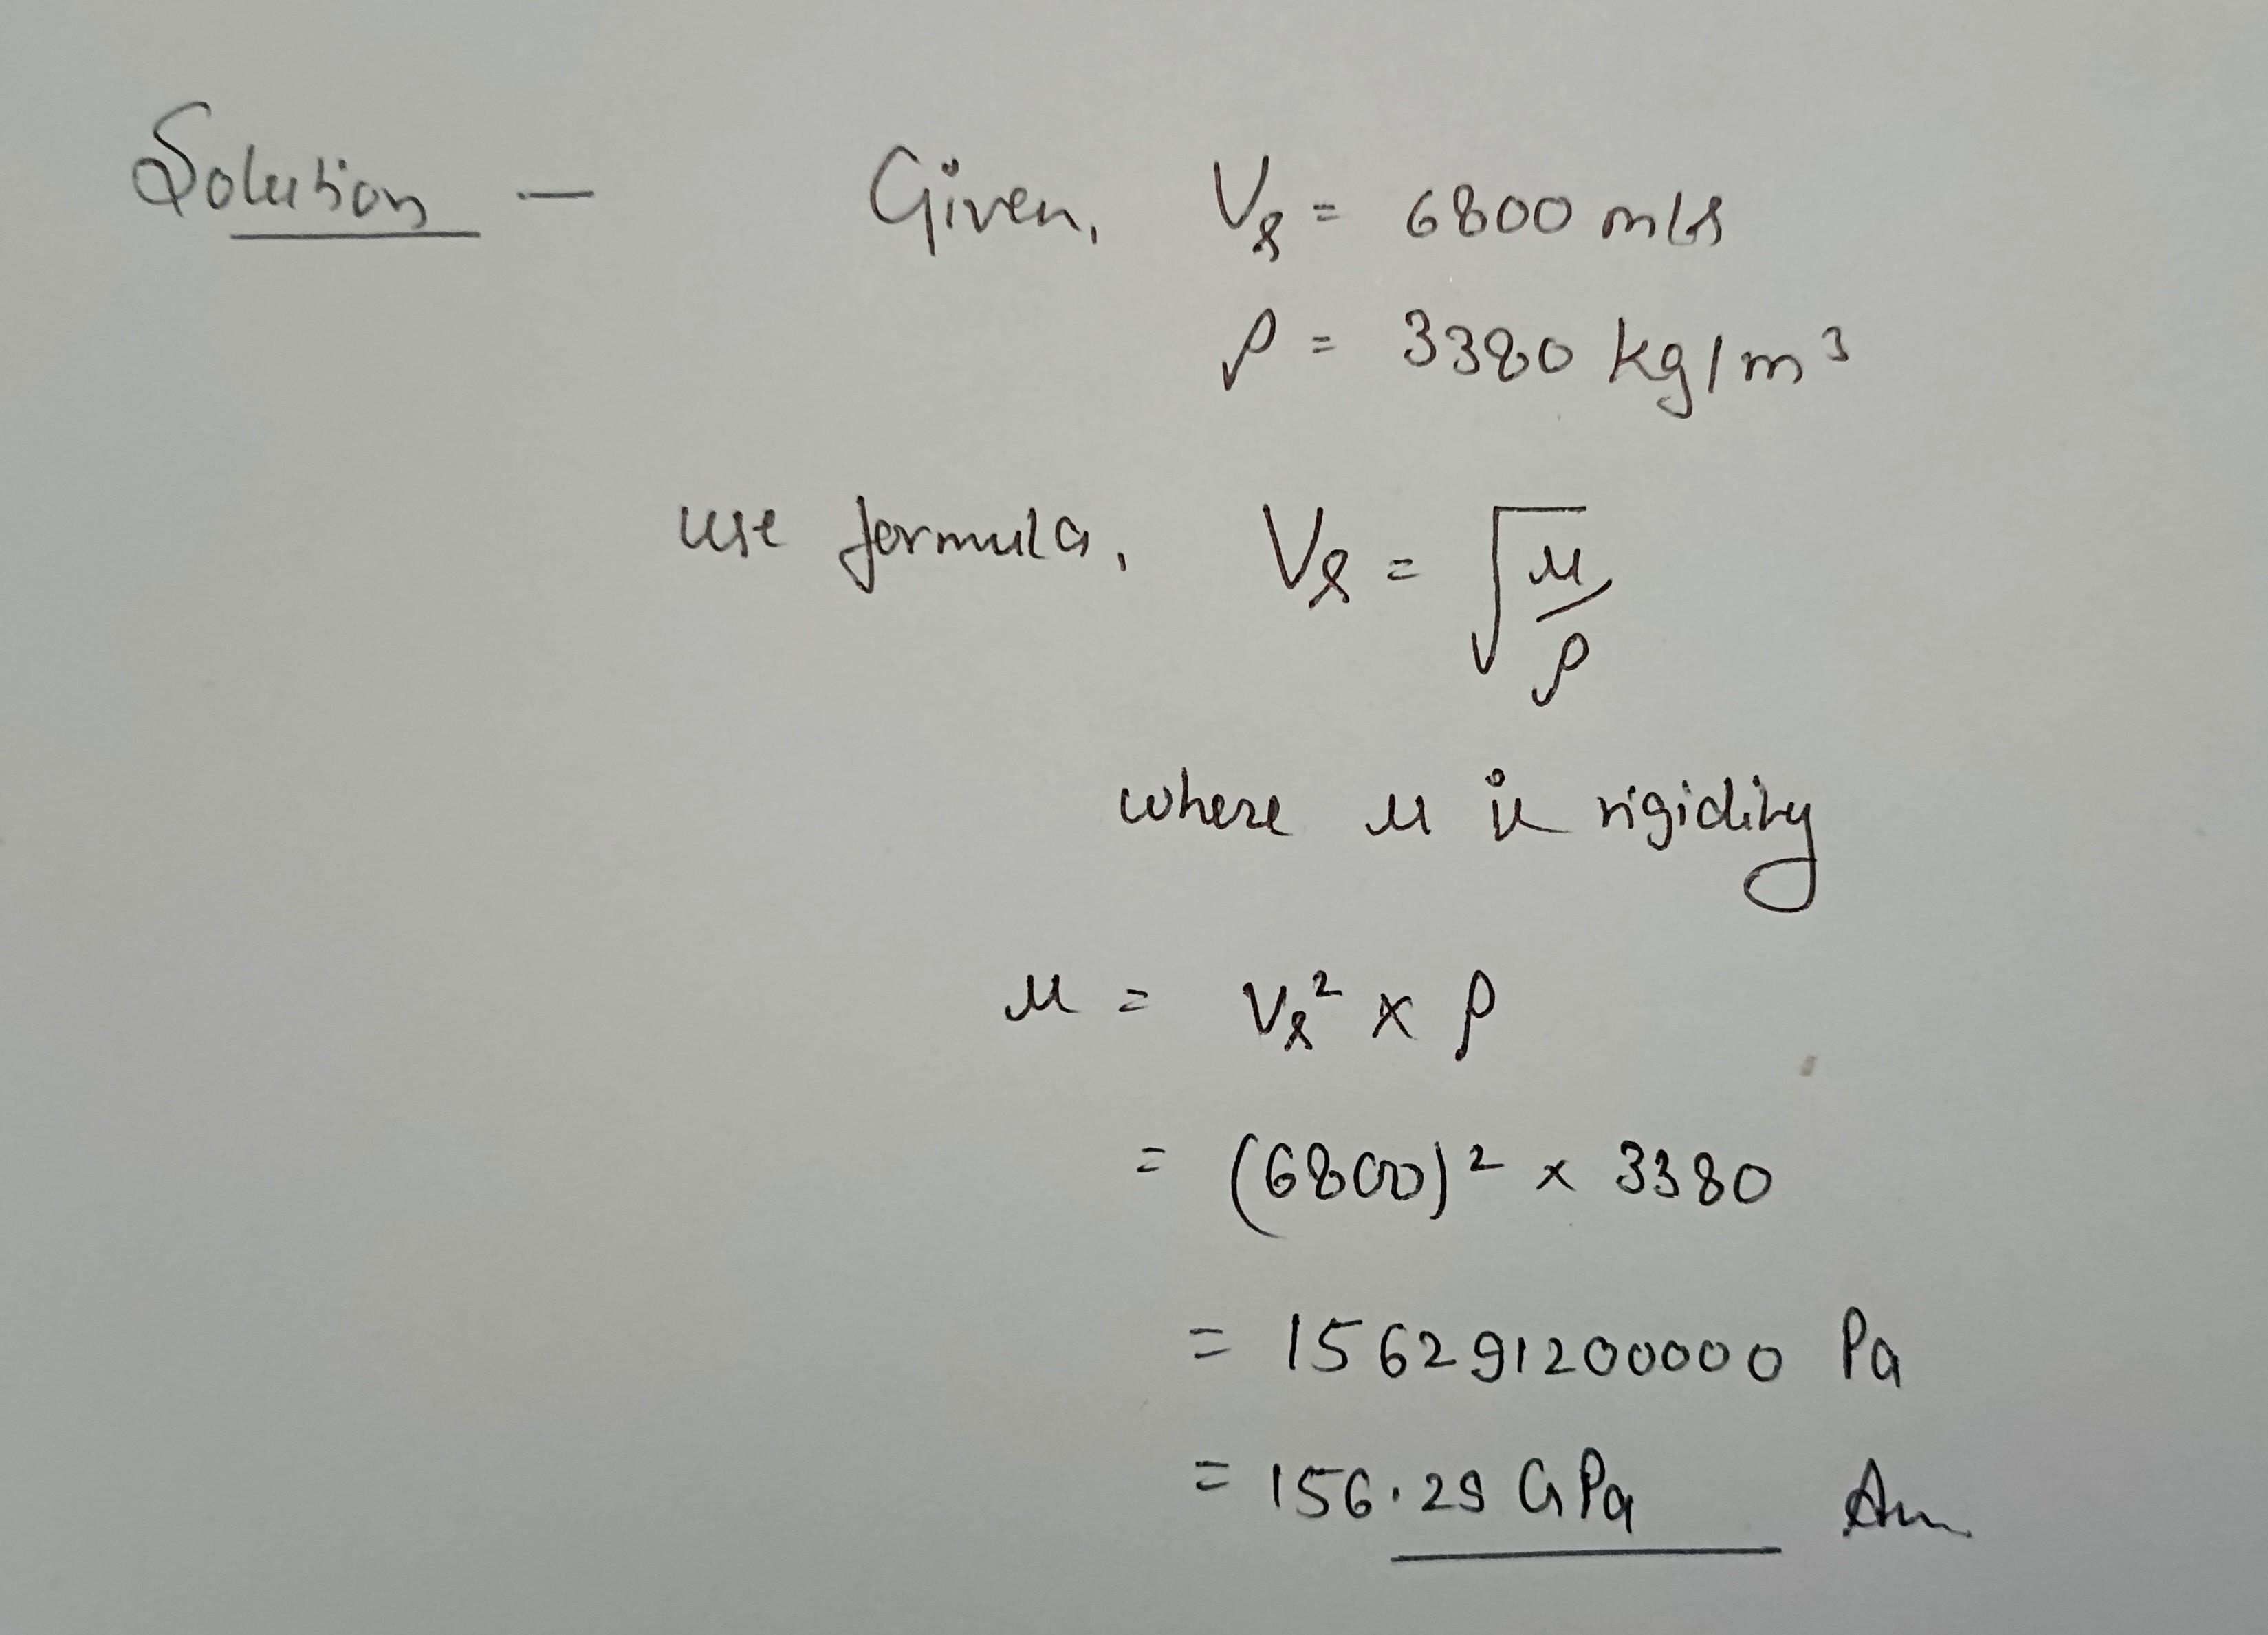 Solution — Given, Vs = 6800 m/s
ρ = 3380 kg/m³
use formula, Vs = √(μ/ρ)
where μ is rigidity
μ = Vs² × ρ
= (6800)² × 3380
= 156291200000 Pa
= 156.29 GPa Ans